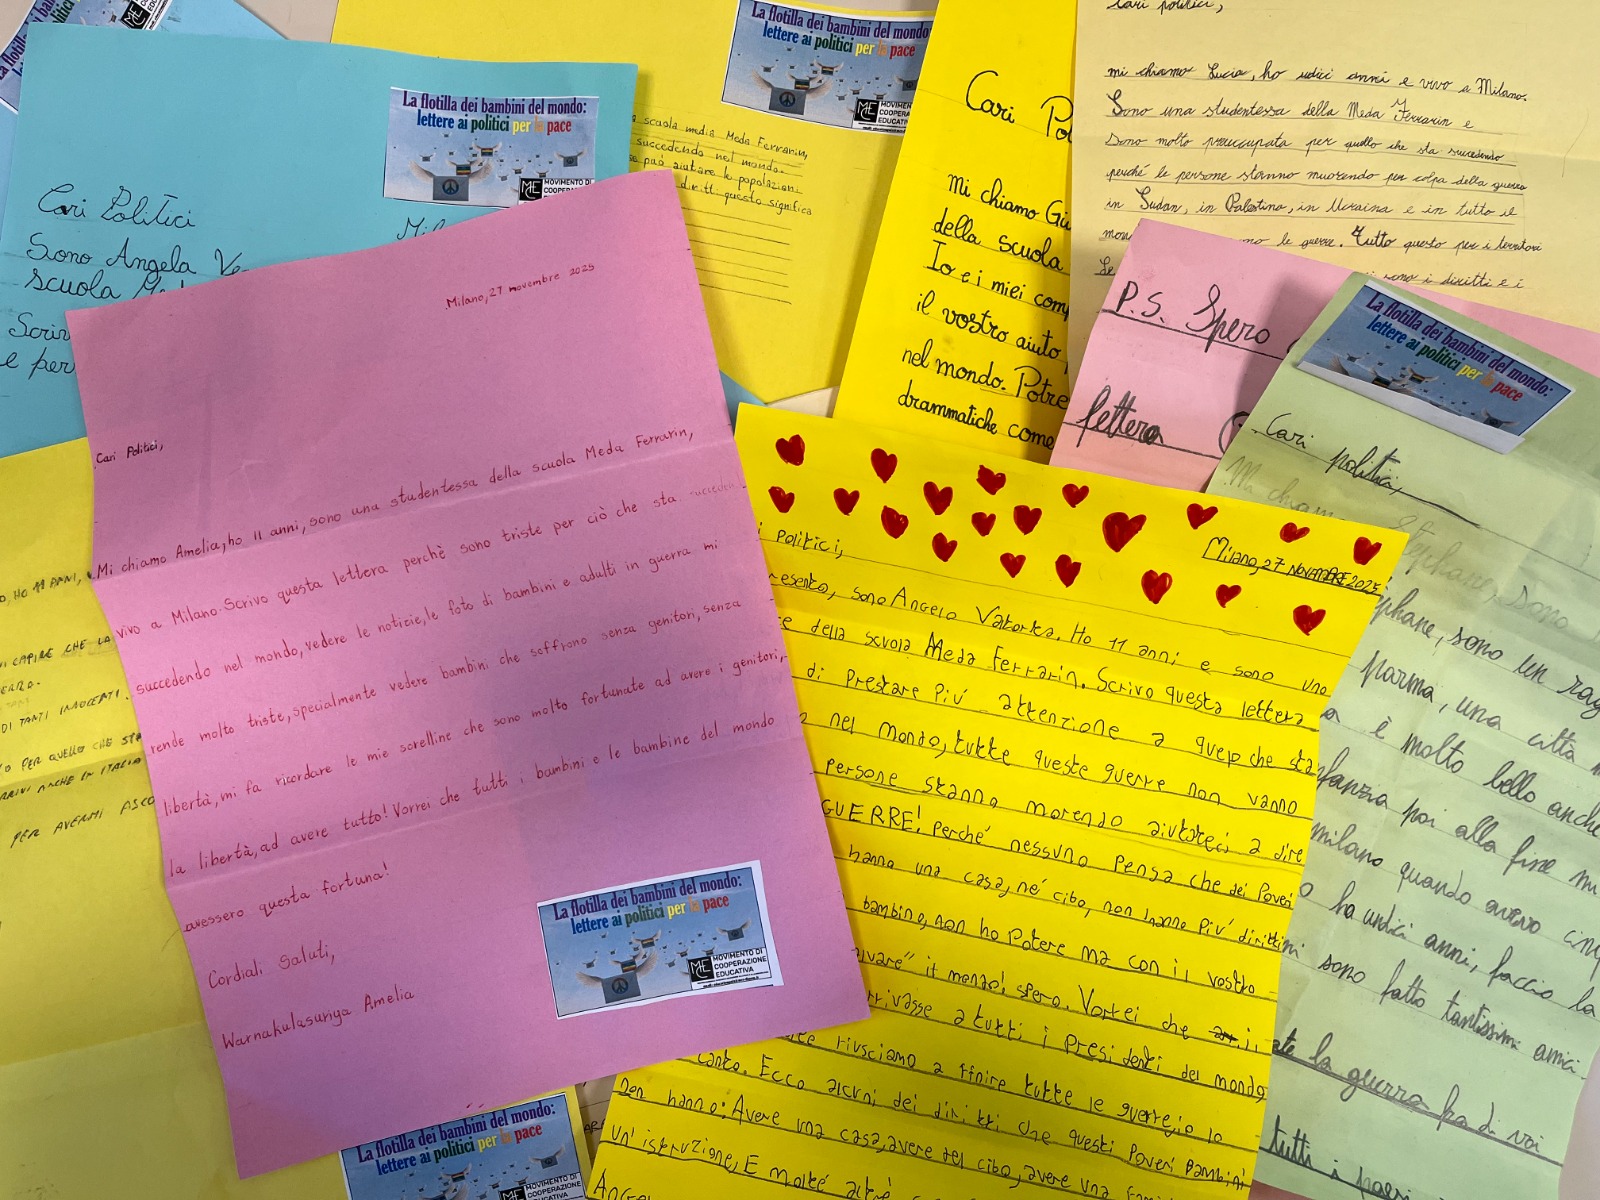 La flotilla dei bambini del mondo:
lettere ai politici per la pace
MCE MOVIMENTO DI
COOPERAZIONE
EDUCATIVA
Cari Politici
Sono Angela
scuola
e per
La flotilla dei bambini del mondo:
lettere ai politici per la pace
MCE MOVIMEN
COOPERA
EDUCATIV
scuola media Meda Ferrarin,
succedendo nel mondo.
può aiutare le popolazioni
diritti questo significa
Cari
mi chiamo
della scuola
Io e i miei comp
il vostro aiuto
nel mondo. Potre
drammatiche come
Cari politici,
mi chiamo Lucia, ho udici anni e vivo a Milano.
Sono una studentessa della Meda Ferrarin e
sono molto preoccupata per quello che sta succedendo
perché le persone stanno muorendo per colpa della guerra
in Sudan, in Palestina, in Ucraina e in tutto il
le guerre. Tutto questo per i territori
sono i diritti e i
P.S. Spero
lettera
Milano, 27 novembre 2025
Cari Politici,
Mi chiamo Amelia, ho 11 anni, sono una studentessa della scuola Meda Ferrarin,
vivo a Milano. Scrivo questa lettera perchè sono triste per ciò che sta
succedendo nel mondo, vedere le notizie, le foto di bambini e adulti in guerra mi
rende molto triste, specialmente vedere bambini che soffrono senza genitori, senza
libertà, mi fa ricordare le mie sorelline che sono molto fortunate ad avere i genitori,
la libertà, ad avere tutto! Vorrei che tutti i bambini e le bambine del mondo
avessero questa fortuna!
Cordiali Saluti,
Warnakulasuriya Amelia
La flotilla dei bambini del mondo:
lettere ai politici per la pace
MCE MOVIMENTO DI
COOPERAZIONE
EDUCATIVA
HO 11 ANNI,
CAPIRE CHE LA
DI TANTI INNOCENTI.
PER QUELLO CHE STA
ANCHE IN ITALIA
PER AVERMI ASCO
Politici,
Milano, 27 NOVEMBRE 2025
sono Angelo Vatorka. Ho 11 anni e sono uno
della scuola Meda Ferrarin. Scrivo questa lettera
di Prestare più attenzione a quello che sta
nel mondo, tutte queste guerre non vanno
Persone stanno morendo aiutateci a dire
GUERRE! Perché nessuno Pensa che dei Poveri
hanno una casa, né cibo, non hanno più diritti
bambine, non ho Potere ma con il vostro
il mondo! spero. Vorrei che
arrivasse a tutti i Presidenti del mondo
riusciamo a finire tutte le guerre, io lo
canto. Ecco alcuni dei diritti che questi Poveri Bambini
non hanno: Avere una casa, avere del cibo, avere una
un'istruzione, E molte altre
La flotilla dei bambini del mondo:
lettere ai politici per la pace
Cari politici,
sono un rag
parma, una città
è molto bello anche
poi alla fine mi
milano quando avevo cinq
ho undici anni, faccio la
sono fatto tantissimi amici.
la guerra fra di voi
tutti i paesi
La flotilla dei bambini del mondo:
lettere ai politici per la pace
MCE MOVIMENTO DI
COOPERAZIONE
EDUCATIVA